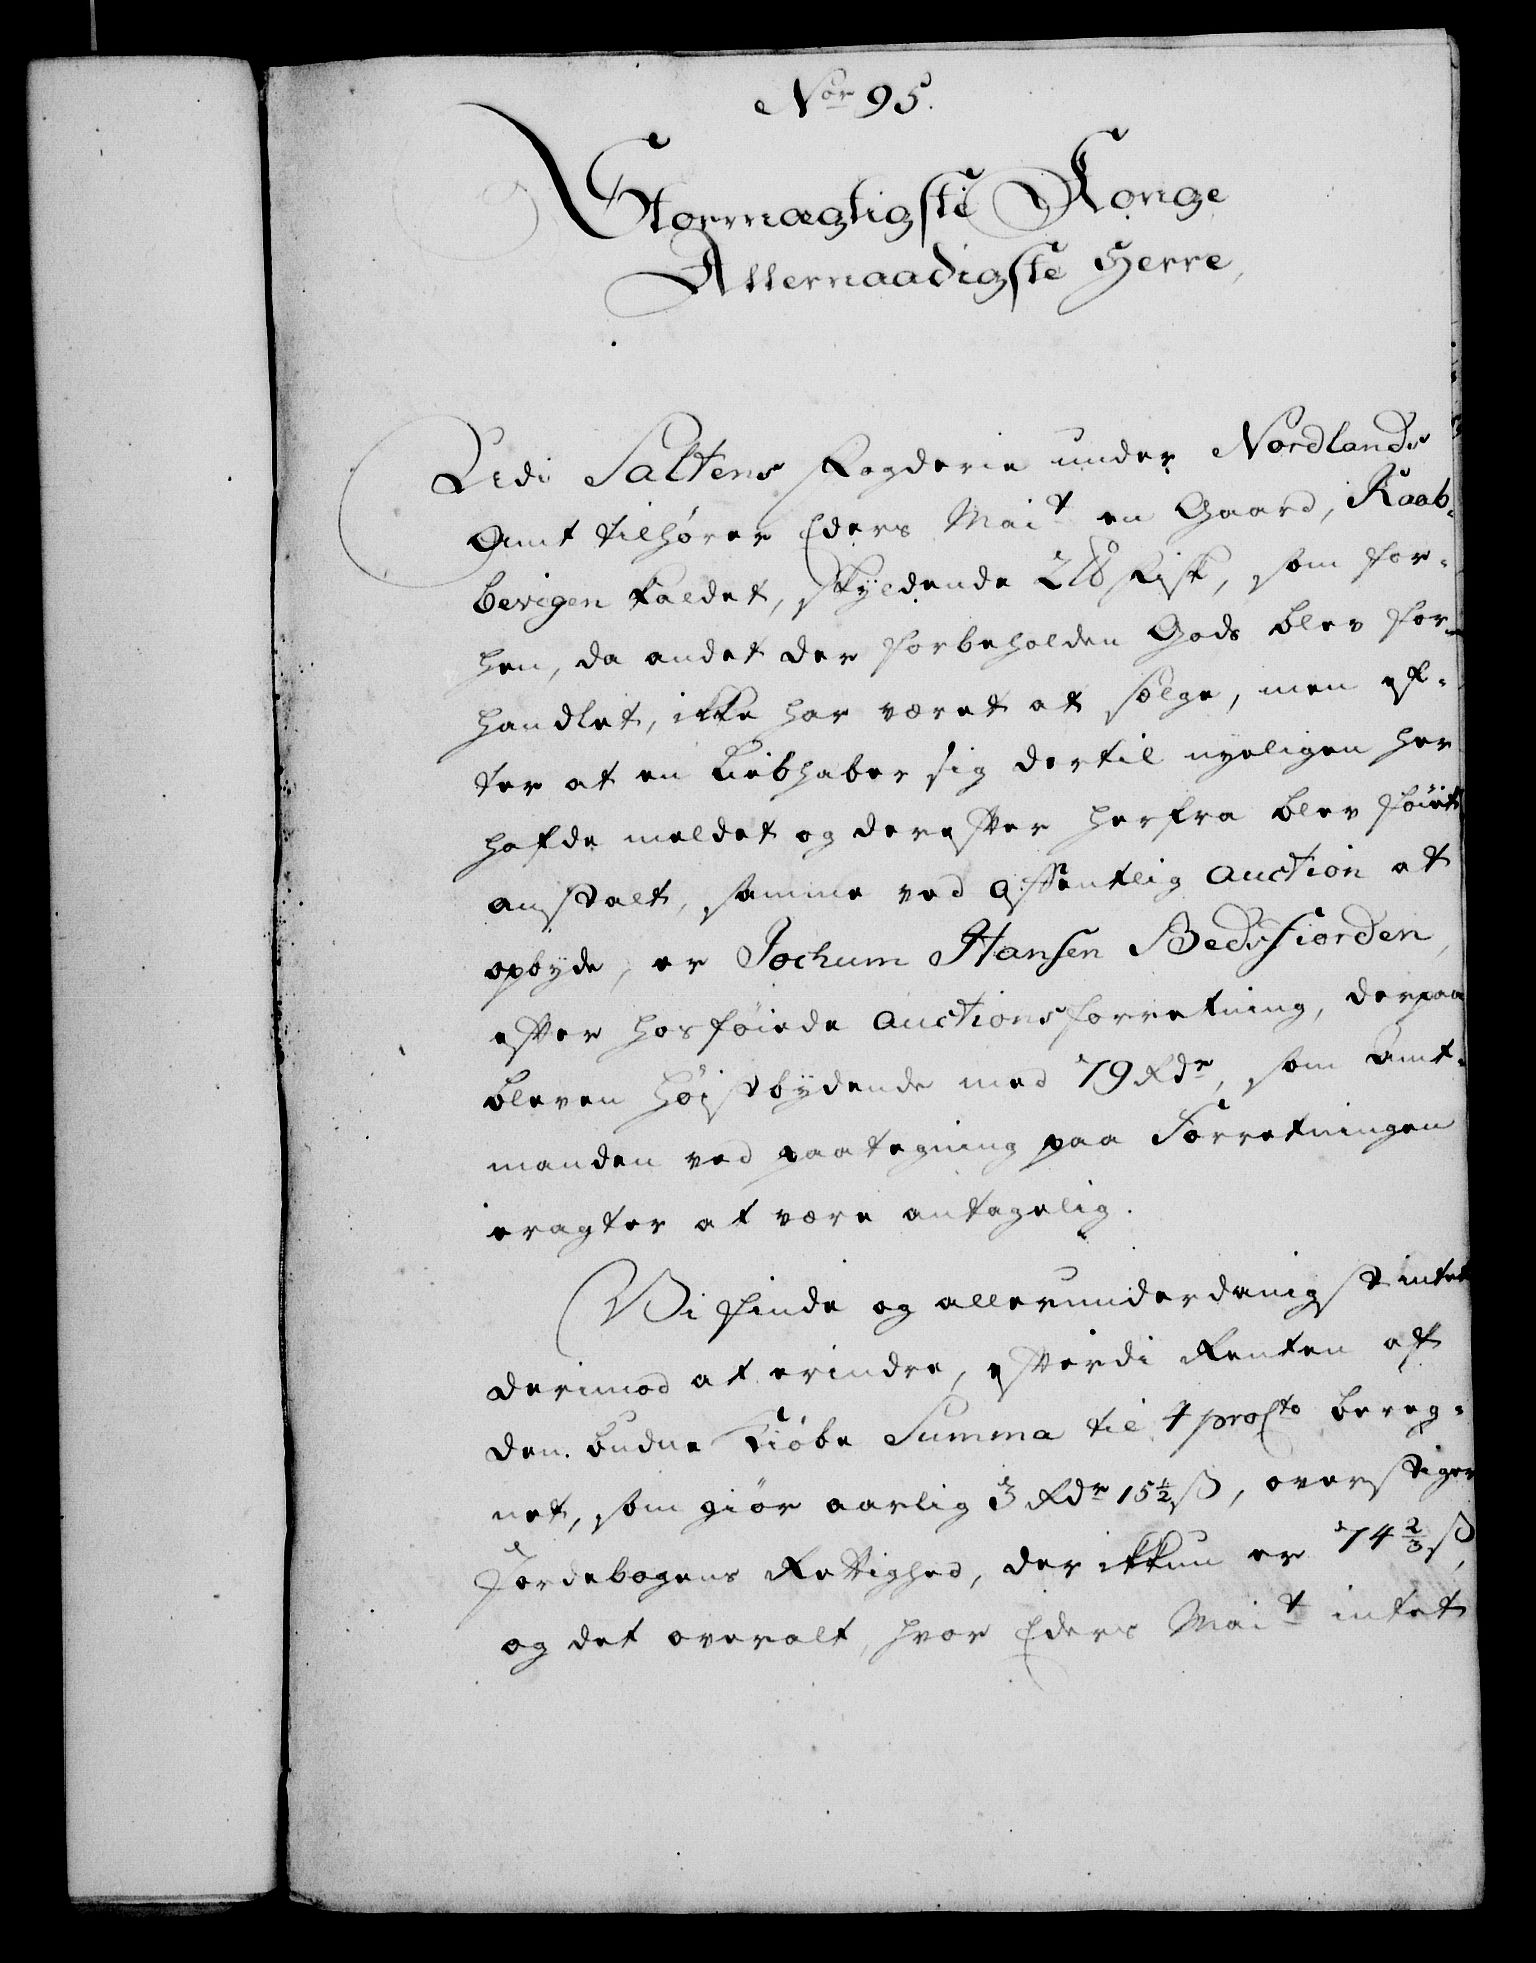 No̲r̲ 95.
Stormægtigste Konge
Allernaadigste Herre,
Udi Saltens Fogderie under Nordlands
Amt tilhører Eders Mait en Gaard, Raab-
bevigen kaldet, skyldende 2 ℔ Fisk, som for-
hen, da andet der forbeholden Gods blev for-
handlet, ikke har været at sælge, men ef-
ter at en Liebhaber sig dertil nyeligen her
hafde meldet og derefter herfra blev föiet
anstalt, samme ved offentlig Auction at
opbyde, er Jochum Hansen Bedsfiorden,
efter hosföiede Auctionsforretning, derpaa
bleven höistbydende med 79 Rdr, som Amt-
manden ved paategning paa Forretningen
eragter at være antagelig.
Vi finde og allerunderdanigst intet
derimod at erindre, efterdi Renten af
den budne Kiöbe Summa til 4 proCto bereg-
net, som giör aarlig 3 Rdr 15½ ß, overstiger
Jordebogens Rettighed, der ikkun er 74⅔ ß,
og det overalt, hvor Eders Mait intet